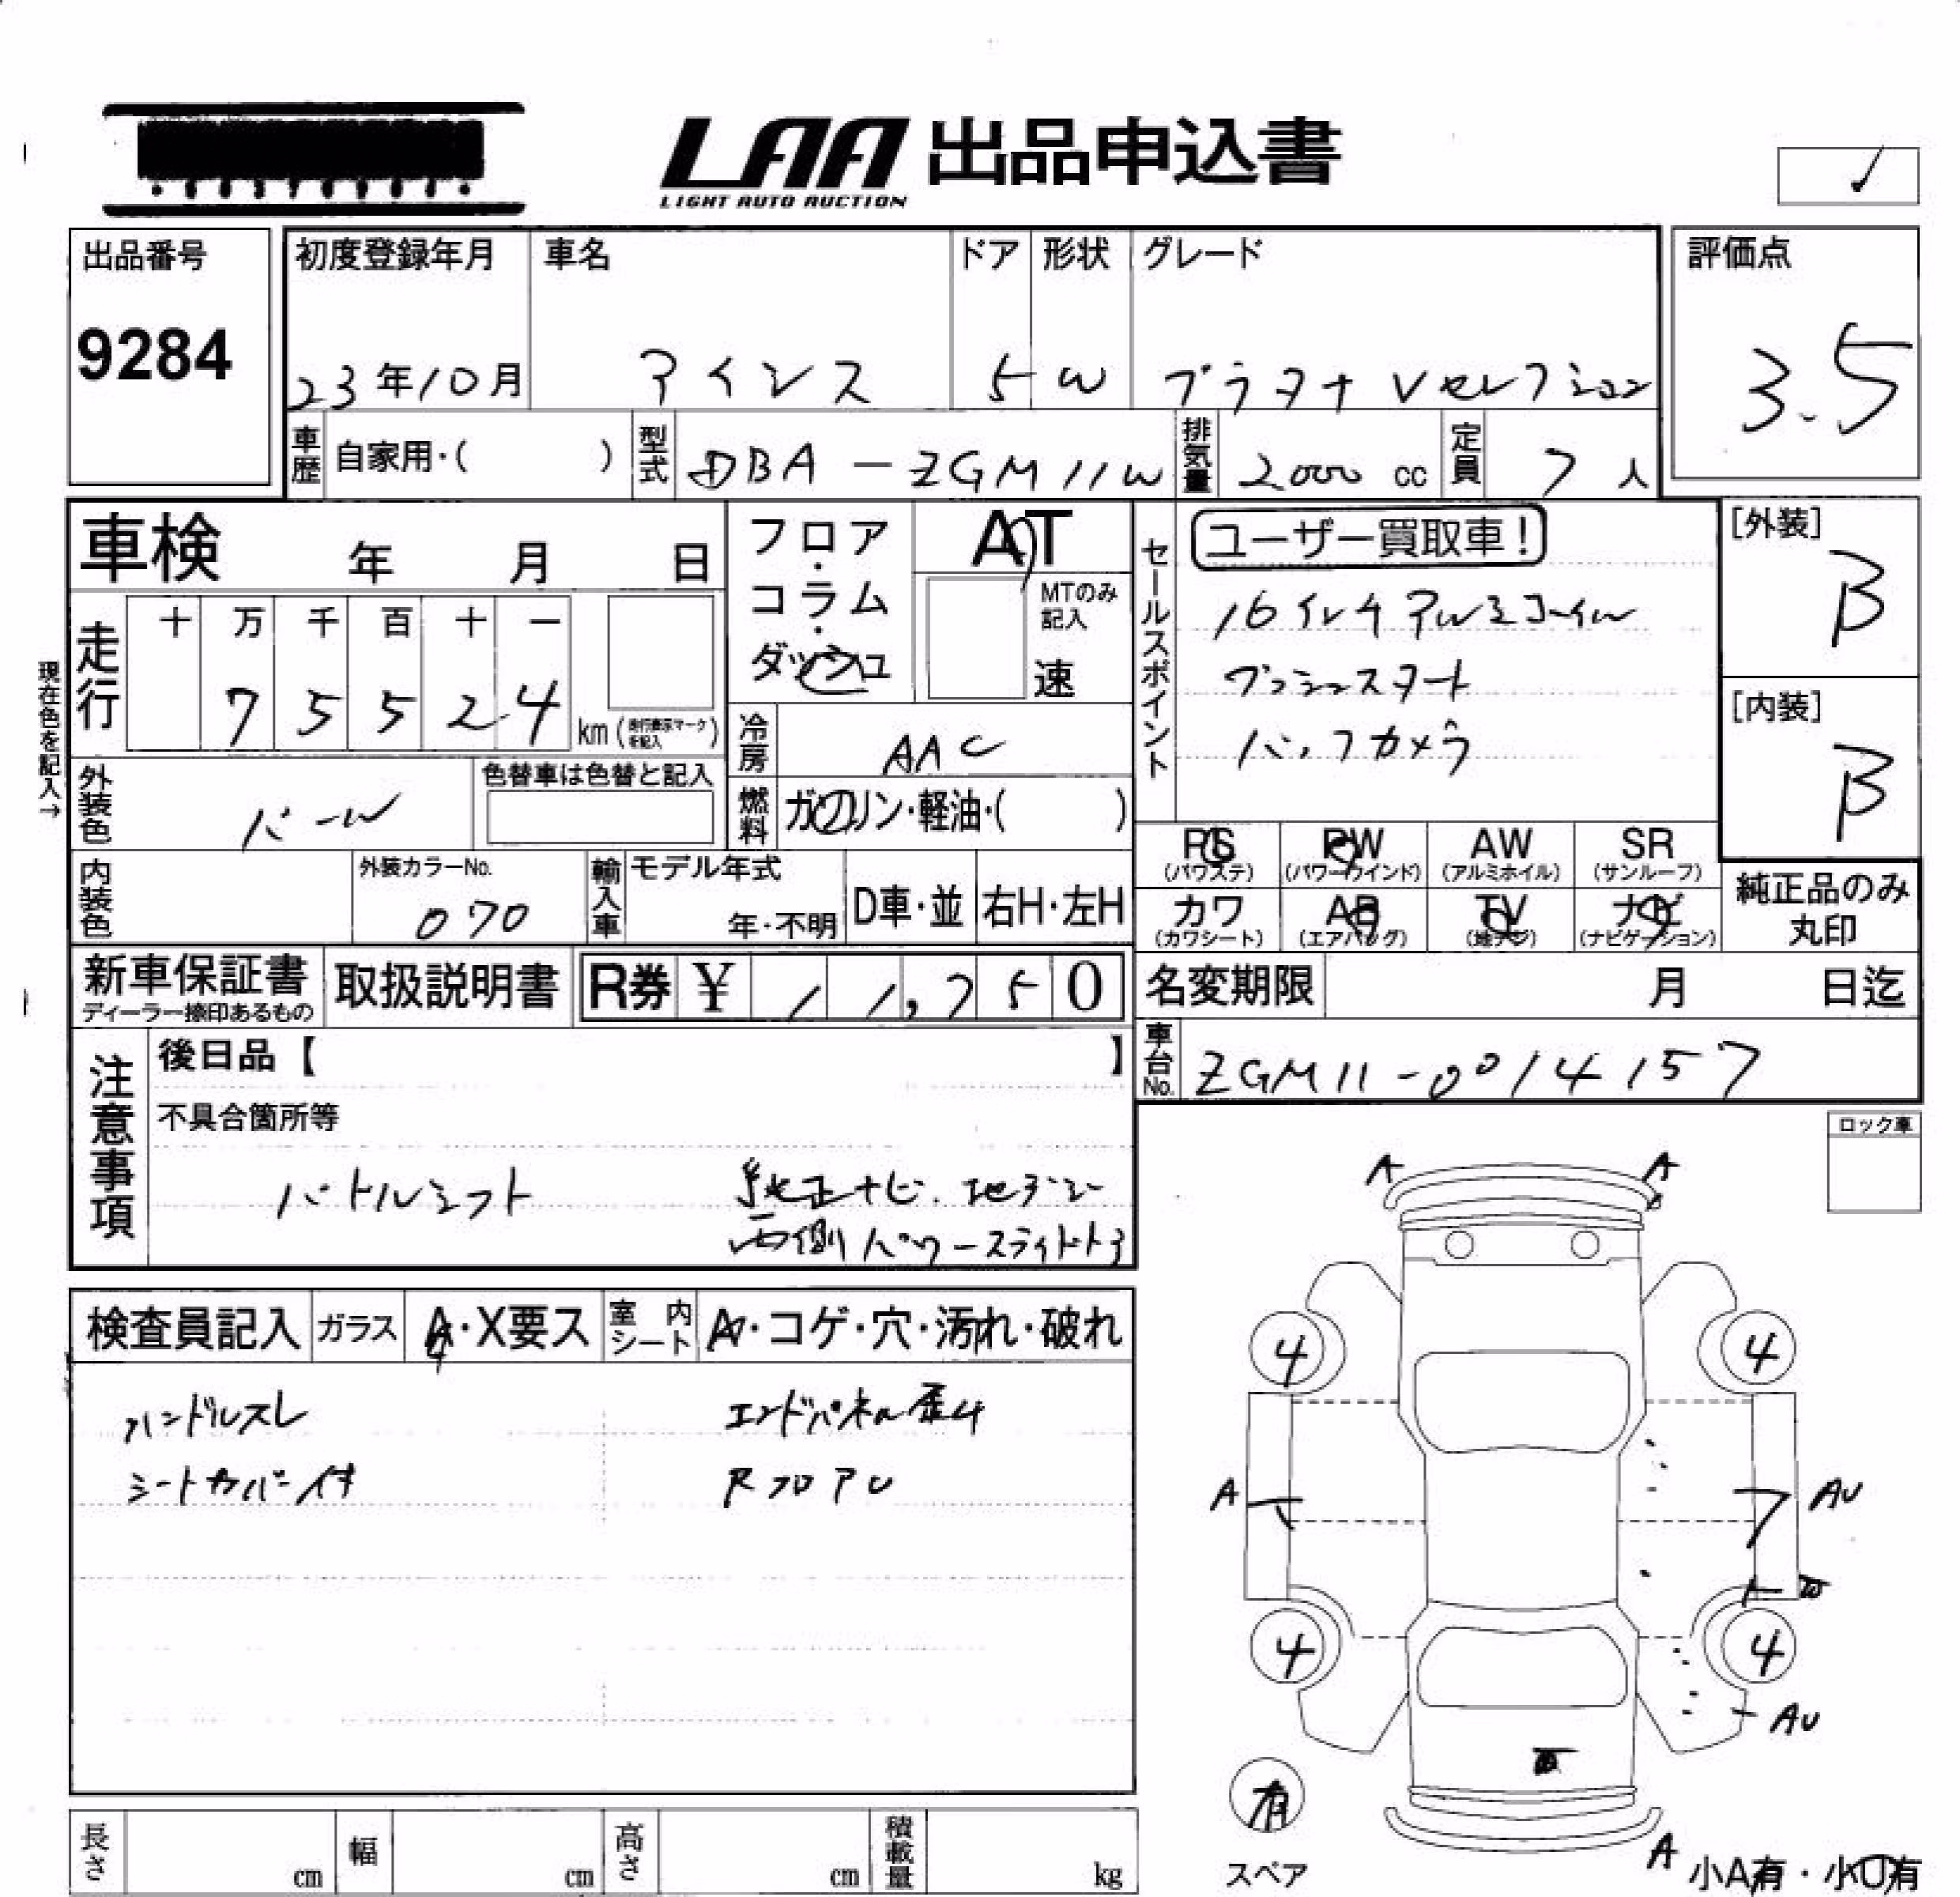 LAA 出品申込書
LIGHT AUTO AUCTION
✓
出品番号
9284
初度登録年月 車名 ドア 形状 グレード
23年10月 アイシス 5 W プラタナ Vセレクション
評価点
3.5
車歴 自家用・( ) 型式 DBA-ZGM11W 排気量 2000 cc 定員 7 人
車検 年 月 日
フロア・コラム・ダッシュ
AT
MTのみ記入
速
セールスポイント
ユーザー買取車!
16インチアルミホイル
プッシュスタート
バックカメラ
[外装]
B
[内装]
B
現在色を記入→
走行 十 万 千 百 十 一
7 5 5 2 4 km (走行表示マークを記入)
冷房 AAC
外装色 パール
色替車は色替と記入
燃料 ガソリン・軽油・( )
内装色
外装カラーNo.
070
輸入車 モデル年式
年・不明 D車・並 右H・左H
PS PW AW SR
(パワステ) (パワーウインド) (アルミホイル) (サンルーフ)
カワ AB TV ナビ
(カワシート) (エアバッグ) (地デジ) (ナビゲーション)
純正品のみ
丸印
新車保証書
ディーラー捺印あるもの
取扱説明書 R券 ¥ 11,750
名変期限 月 日迄
車台No. ZGM11-0014157
注意事項
後日品【 】
不具合箇所等
パドルシフト 純正ナビ. 地デジ
両側パワースライドドア
ロック車
検査員記入 ガラス A・X要ス 室内シート A・コゲ・穴・汚れ・破れ
ハンドルスレ エンドパネル歪4
シートカバー付 RフロアU
A A
4 4
A AU
4 4
AU
有
スペア
A 小A有・小U有
長さ cm 幅 cm 高さ cm 積載量 kg